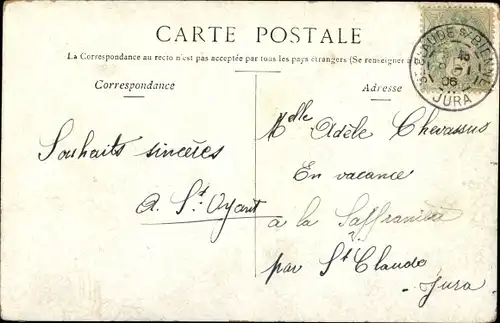 CARTE POSTALE
La Correspondance au recto n'est pas acceptée par tous les pays étrangers (Se renseigner à
Correspondance
Adresse
Souhaits sincères
A. St. Oyant
Mdlle Adèle Chevassus
En vacance
à la Saffranière
par St Claude
Jura
ST CLAUDE S/ BIENNE
06
JURA